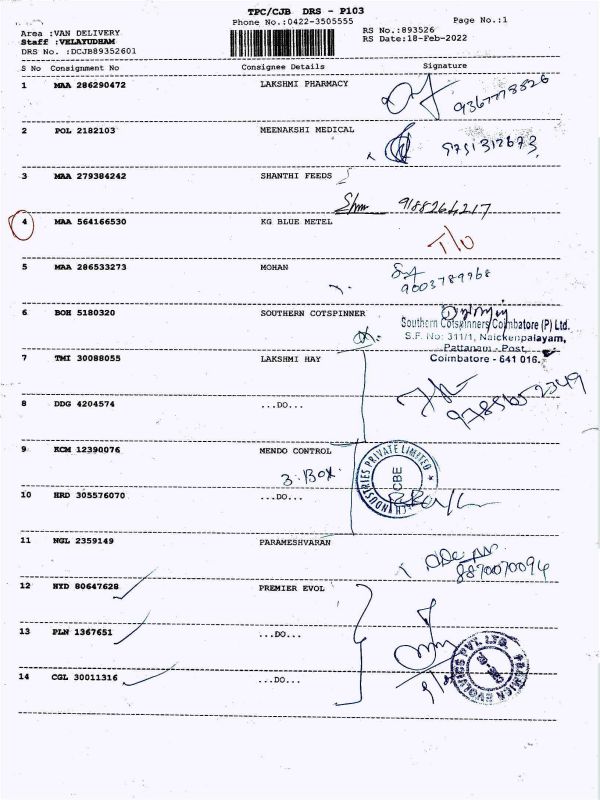 TPC/CJB DRS - P103
Phone No.:0422-3505555
Page No.:1
Area :VAN DELIVERY
RS No.:893526
Staff :VELAYUDHAM
RS Date:18-Feb-2022
DRS No. :DCJB89352601
S No Consignment No Consignee Details Signature
1 MAA 286290472 LAKSHMI PHARMACY
9367778826
2 POL 2182103 MEENAKSHI MEDICAL
9751312673
3 MAA 279384242 SHANTHI FEEDS
9188264217
4 MAA 564166530 KG BLUE METEL
T/O
5 MAA 286533273 MOHAN
9003789968
6 BOH 5180320 SOUTHERN COTSPINNER
Southern Cotspinners Coimbatore (P) Ltd.
S.F. No: 311/1, Naickenpalayam,
Pattanam - Post,
Coimbatore - 641 016.
7 TMI 30088055 LAKSHMI HAY
8 DDG 4204574 ...DO...
9 KCM 12390076 MENDO CONTROL
3. BOX.
INDUSTRIES PRIVATE LIMITED
CBE
10 HRD 305576070 ...DO...
11 NGL 2359149 PARAMESHVARAN
8870070094
12 HYD 80647628 PREMIER EVOL
13 PLN 1367651 ...DO...
14 CGL 30011316 ...DO...
PREMIER EVOLVICS PVT. LTD.